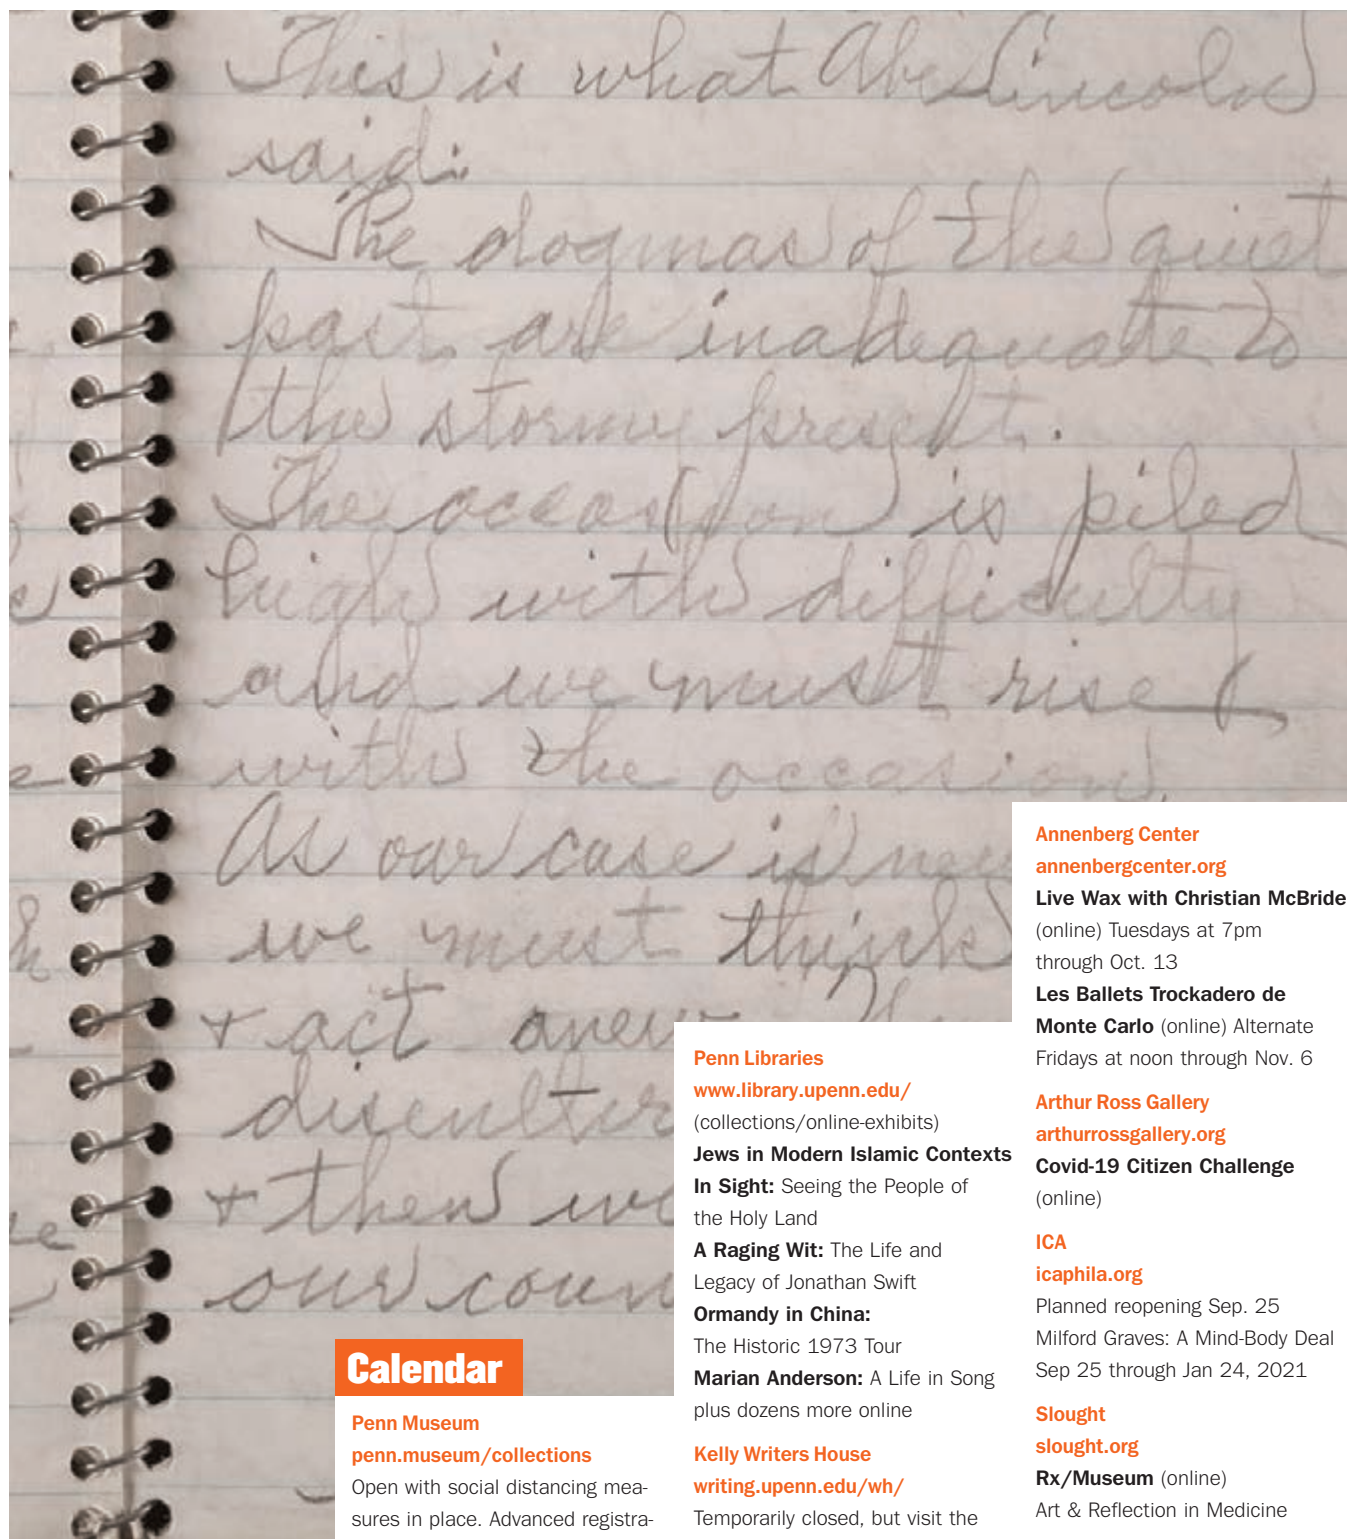 This is what Abe Lincoln
said:
The dogmas of the quiet
past are inadequate to
the stormy present.
The occasion is piled
high with difficulty
and we must rise
with the occasion.
As our case is new
we must think
+ act anew
+ then we
our coun
Calendar
Penn Museum
penn.museum/collections
Open with social distancing mea-
sures in place. Advanced registra-
Penn Libraries
www.library.upenn.edu/
(collections/online-exhibits)
Jews in Modern Islamic Contexts
In Sight: Seeing the People of
the Holy Land
A Raging Wit: The Life and
Legacy of Jonathan Swift
Ormandy in China:
The Historic 1973 Tour
Marian Anderson: A Life in Song
plus dozens more online
Kelly Writers House
writing.upenn.edu/wh/
Temporarily closed, but visit the
Annenberg Center
annenbergcenter.org
Live Wax with Christian McBride
(online) Tuesdays at 7pm
through Oct. 13
Les Ballets Trockadero de
Monte Carlo (online) Alternate
Fridays at noon through Nov. 6
Arthur Ross Gallery
arthurrossgallery.org
Covid-19 Citizen Challenge
(online)
ICA
icaphila.org
Planned reopening Sep. 25
Milford Graves: A Mind-Body Deal
Sep 25 through Jan 24, 2021
Slought
slought.org
Rx/Museum (online)
Art & Reflection in Medicine